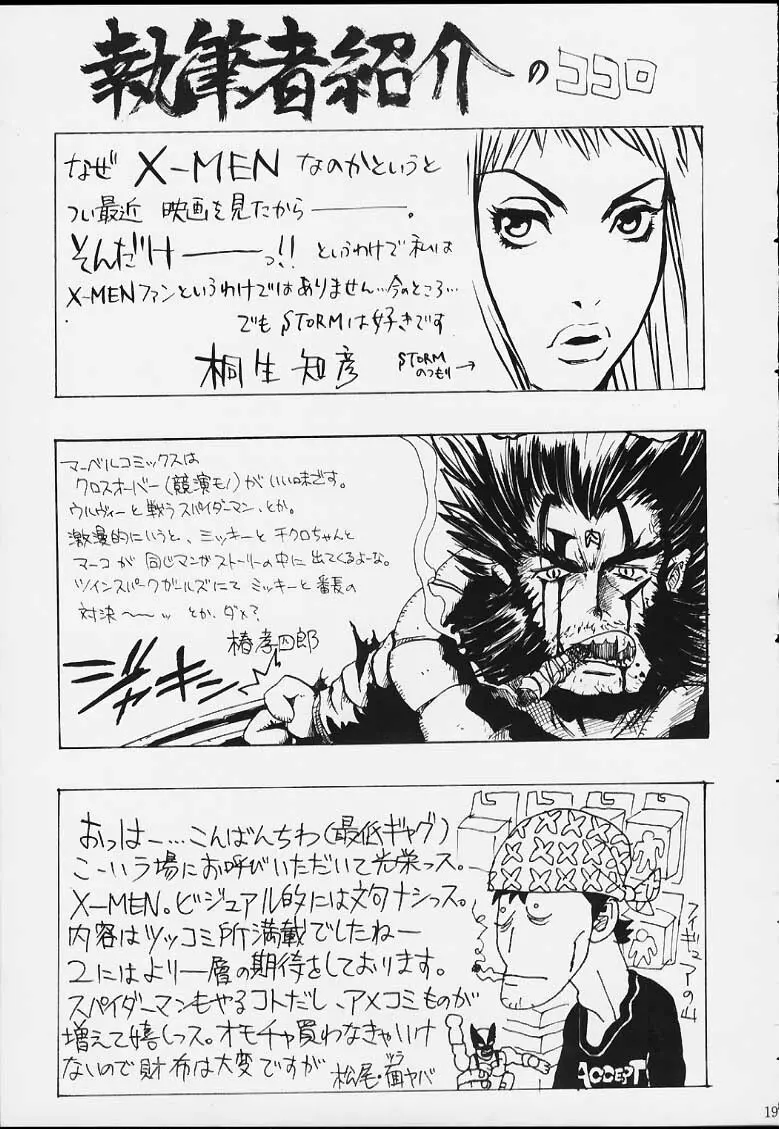 執筆者紹介のココロ
なぜ X-MEN なのかというと
つい最近 映画を見たから―――。
そんだけ――っ!! というわけで私は
X-MENファンというわけではありません…今のところ…
でも STORMは好きです
桐生知彦
STORM
のつもり→
マーベルコミックスは
クロスオーバー(競演モノ)がいい味です。
ウルヴィーと戦うスパイダーマン、とか。
激漫的にいうと、ミッキーと チクロちゃんと
マーコが 同じマンガストーリーの中に出てくるよーな。
ツインスパークガールズにて ミッキーと番長の
対決〜〜ッ とか、ダメ?
椿孝四郎
ジャキン
肉
おっはー…こんばんちわ(最低ギャグ)
こーいう場にお呼びいただいて光栄っス。
X-MEN。ビジュアル的には文句ナシっス。
内容はツッコミ所満載でしたねー
2にはより一層の期待をしております。
スパイダーマンもやるコトだし、アメコミものが
増えて嬉しっス。オモチャ買わなきゃいけ
ないので財布は大変ですが
松尾・面ヤバ
ヅラ
フィギュアの山
ACCEPT
19